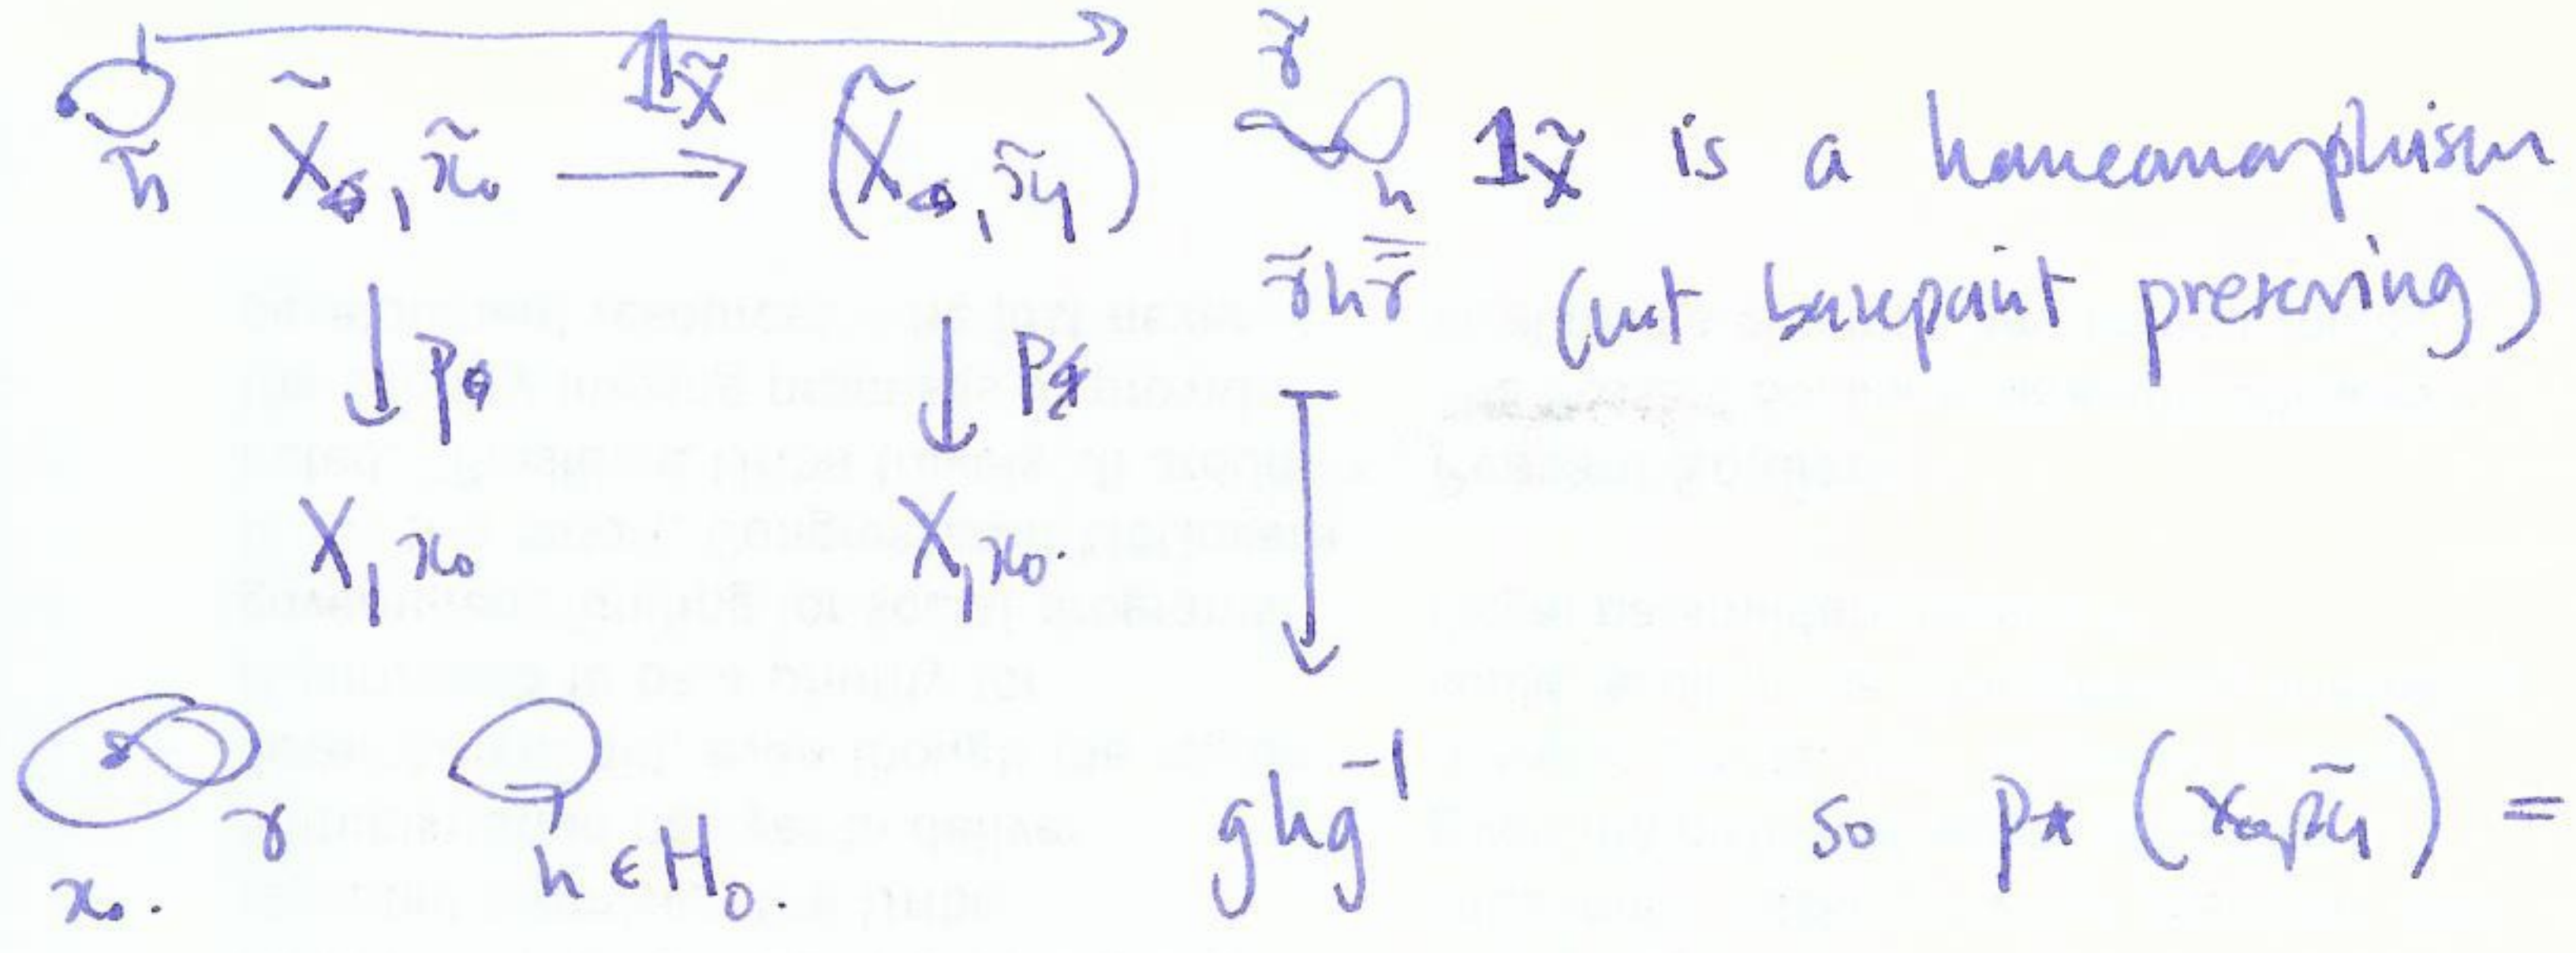 γ̃
h̃ X̃₀, x̃₀ ⟶ (X̃₀, x̃₁) h 1_X̃ is a homeomorphism
1_X̃
γ̃hγ̃̅ (not basepoint preserving)
↓ p ↓ p
X, x₀ X, x₀.
γ h ∈ H₀. ghg⁻¹ so p* (x̃₁) =
x₀.